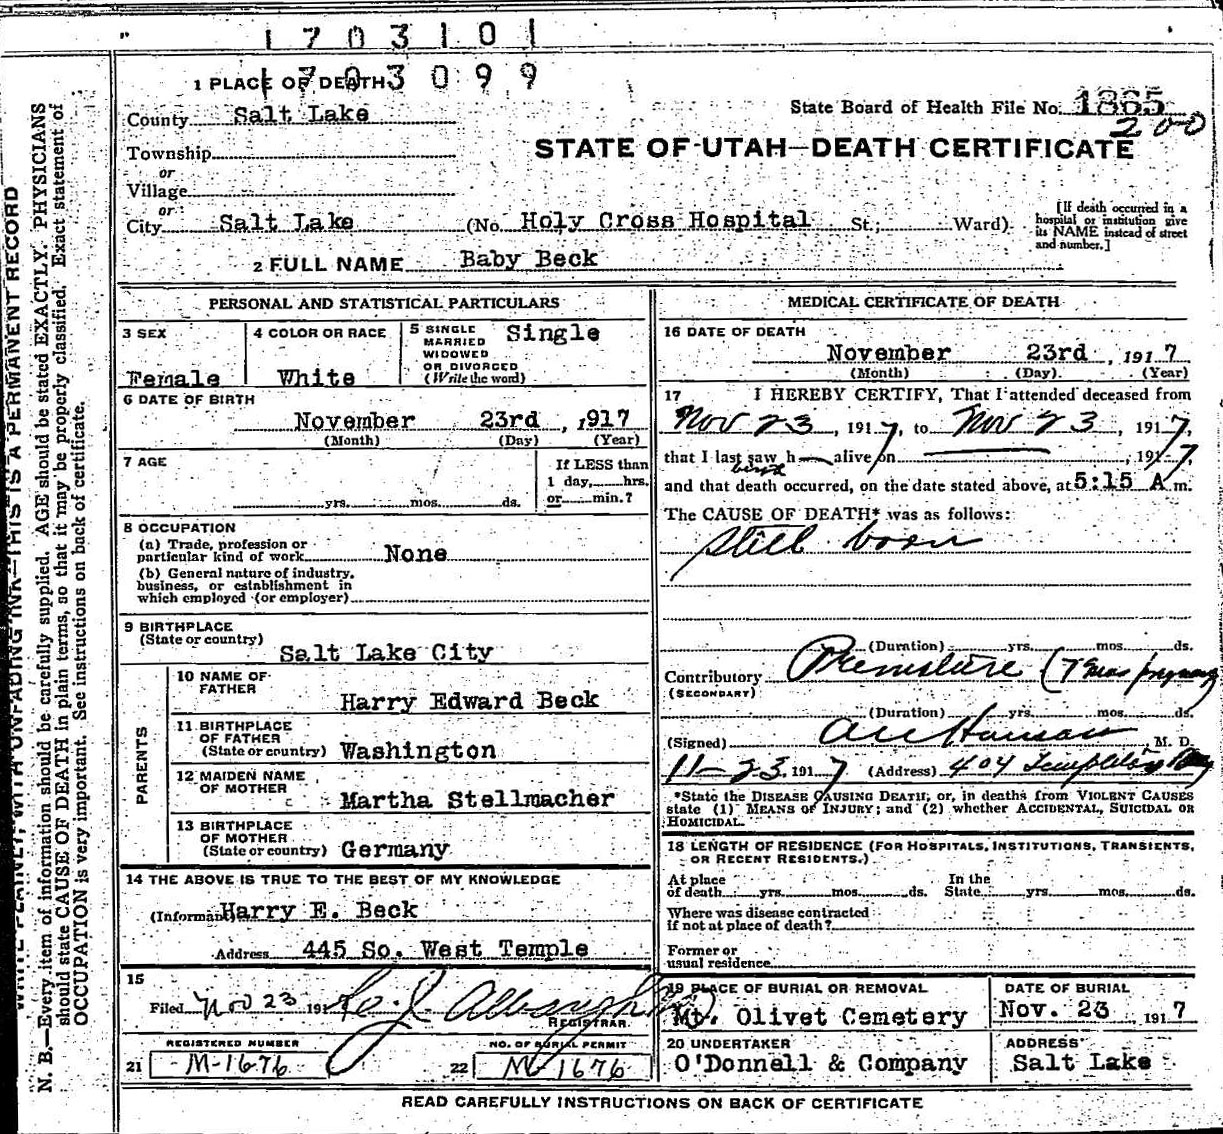 1703101
1 PLACE OF DEATH
1703099
County Salt Lake
State Board of Health File No. 1865
200
Township
or
Village
or
STATE OF UTAH—DEATH CERTIFICATE
City Salt Lake (No. Holy Cross Hospital St.; Ward)
[If death occurred in a
hospital or institution give
its NAME instead of street
and number.]
2 FULL NAME Baby Beck
PERSONAL AND STATISTICAL PARTICULARS
3 SEX
Female
4 COLOR OR RACE
White
5 SINGLE
MARRIED
WIDOWED
OR DIVORCED
(Write the word)
Single
6 DATE OF BIRTH
November 23rd, 1917
(Month) (Day) (Year)
7 AGE
yrs. mos. ds.
If LESS than
1 day, hrs.
or min.?
8 OCCUPATION
(a) Trade, profession or
particular kind of work None
(b) General nature of industry,
business, or establishment in
which employed (or employer)
9 BIRTHPLACE
(State or country)
Salt Lake City
PARENTS
10 NAME OF
FATHER
Harry Edward Beck
11 BIRTHPLACE
OF FATHER
(State or country) Washington
12 MAIDEN NAME
OF MOTHER
Martha Stellmacher
13 BIRTHPLACE
OF MOTHER
(State or country) Germany
14 THE ABOVE IS TRUE TO THE BEST OF MY KNOWLEDGE
(Informant) Harry E. Beck
Address 445 So. West Temple
15
Filed Nov 23 191
REGISTRAR.
REGISTERED NUMBER
21 M-1676
NO. OF BURIAL PERMIT
22 M 1676
MEDICAL CERTIFICATE OF DEATH
16 DATE OF DEATH
November 23rd, 1917
(Month) (Day) (Year)
17 I HEREBY CERTIFY, That I attended deceased from
Nov 23, 1917, to Nov 23, 1917,
that I last saw h— alive on , 1917,
birth
and that death occurred, on the date stated above, at 5:15 A m.
The CAUSE OF DEATH* was as follows:
Still born
(Duration) yrs. mos. ds.
Contributory Premature (7 mos pregnancy
(SECONDARY)
(Duration) yrs. mos. ds.
(Signed) M. D.
11-23 1917 (Address) 404 Templeton
*State the DISEASE CAUSING DEATH; or, in deaths from VIOLENT CAUSES
state (1) MEANS OF INJURY; and (2) whether ACCIDENTAL, SUICIDAL OR
HOMICIDAL.
18 LENGTH OF RESIDENCE (FOR HOSPITALS, INSTITUTIONS, TRANSIENTS,
OR RECENT RESIDENTS.)
At place
of death yrs. mos. ds.
In the
State yrs. mos. ds.
Where was disease contracted
if not at place of death?
Former or
usual residence
19 PLACE OF BURIAL OR REMOVAL
Mt. Olivet Cemetery
DATE OF BURIAL
Nov. 23 1917
20 UNDERTAKER
O'Donnell & Company
ADDRESS
Salt Lake
READ CAREFULLY INSTRUCTIONS ON BACK OF CERTIFICATE
WRITE PLAINLY, WITH UNFADING INK—THIS IS A PERMANENT RECORD
N. B.—Every item of information should be carefully supplied. AGE should be stated EXACTLY. PHYSICIANS
should state CAUSE OF DEATH in plain terms, so that it may be properly classified. Exact statement of
OCCUPATION is very important. See instructions on back of certificate.